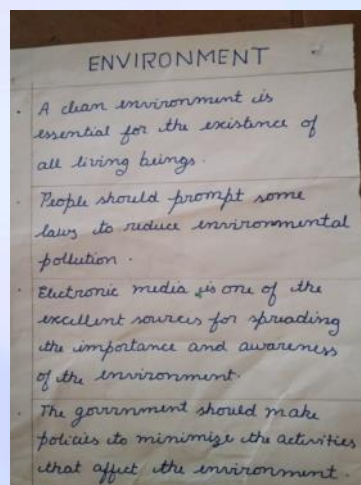 ENVIRONMENT
. A clean environment is
essential for the existence of
all living beings.
. People should prompt some
laws to reduce environmental
pollution.
. Electronic media is one of the
excellent sources for spreading
the importance and awareness
of the environment.
. The government should make
policies to minimize the activities
that affect the environment.